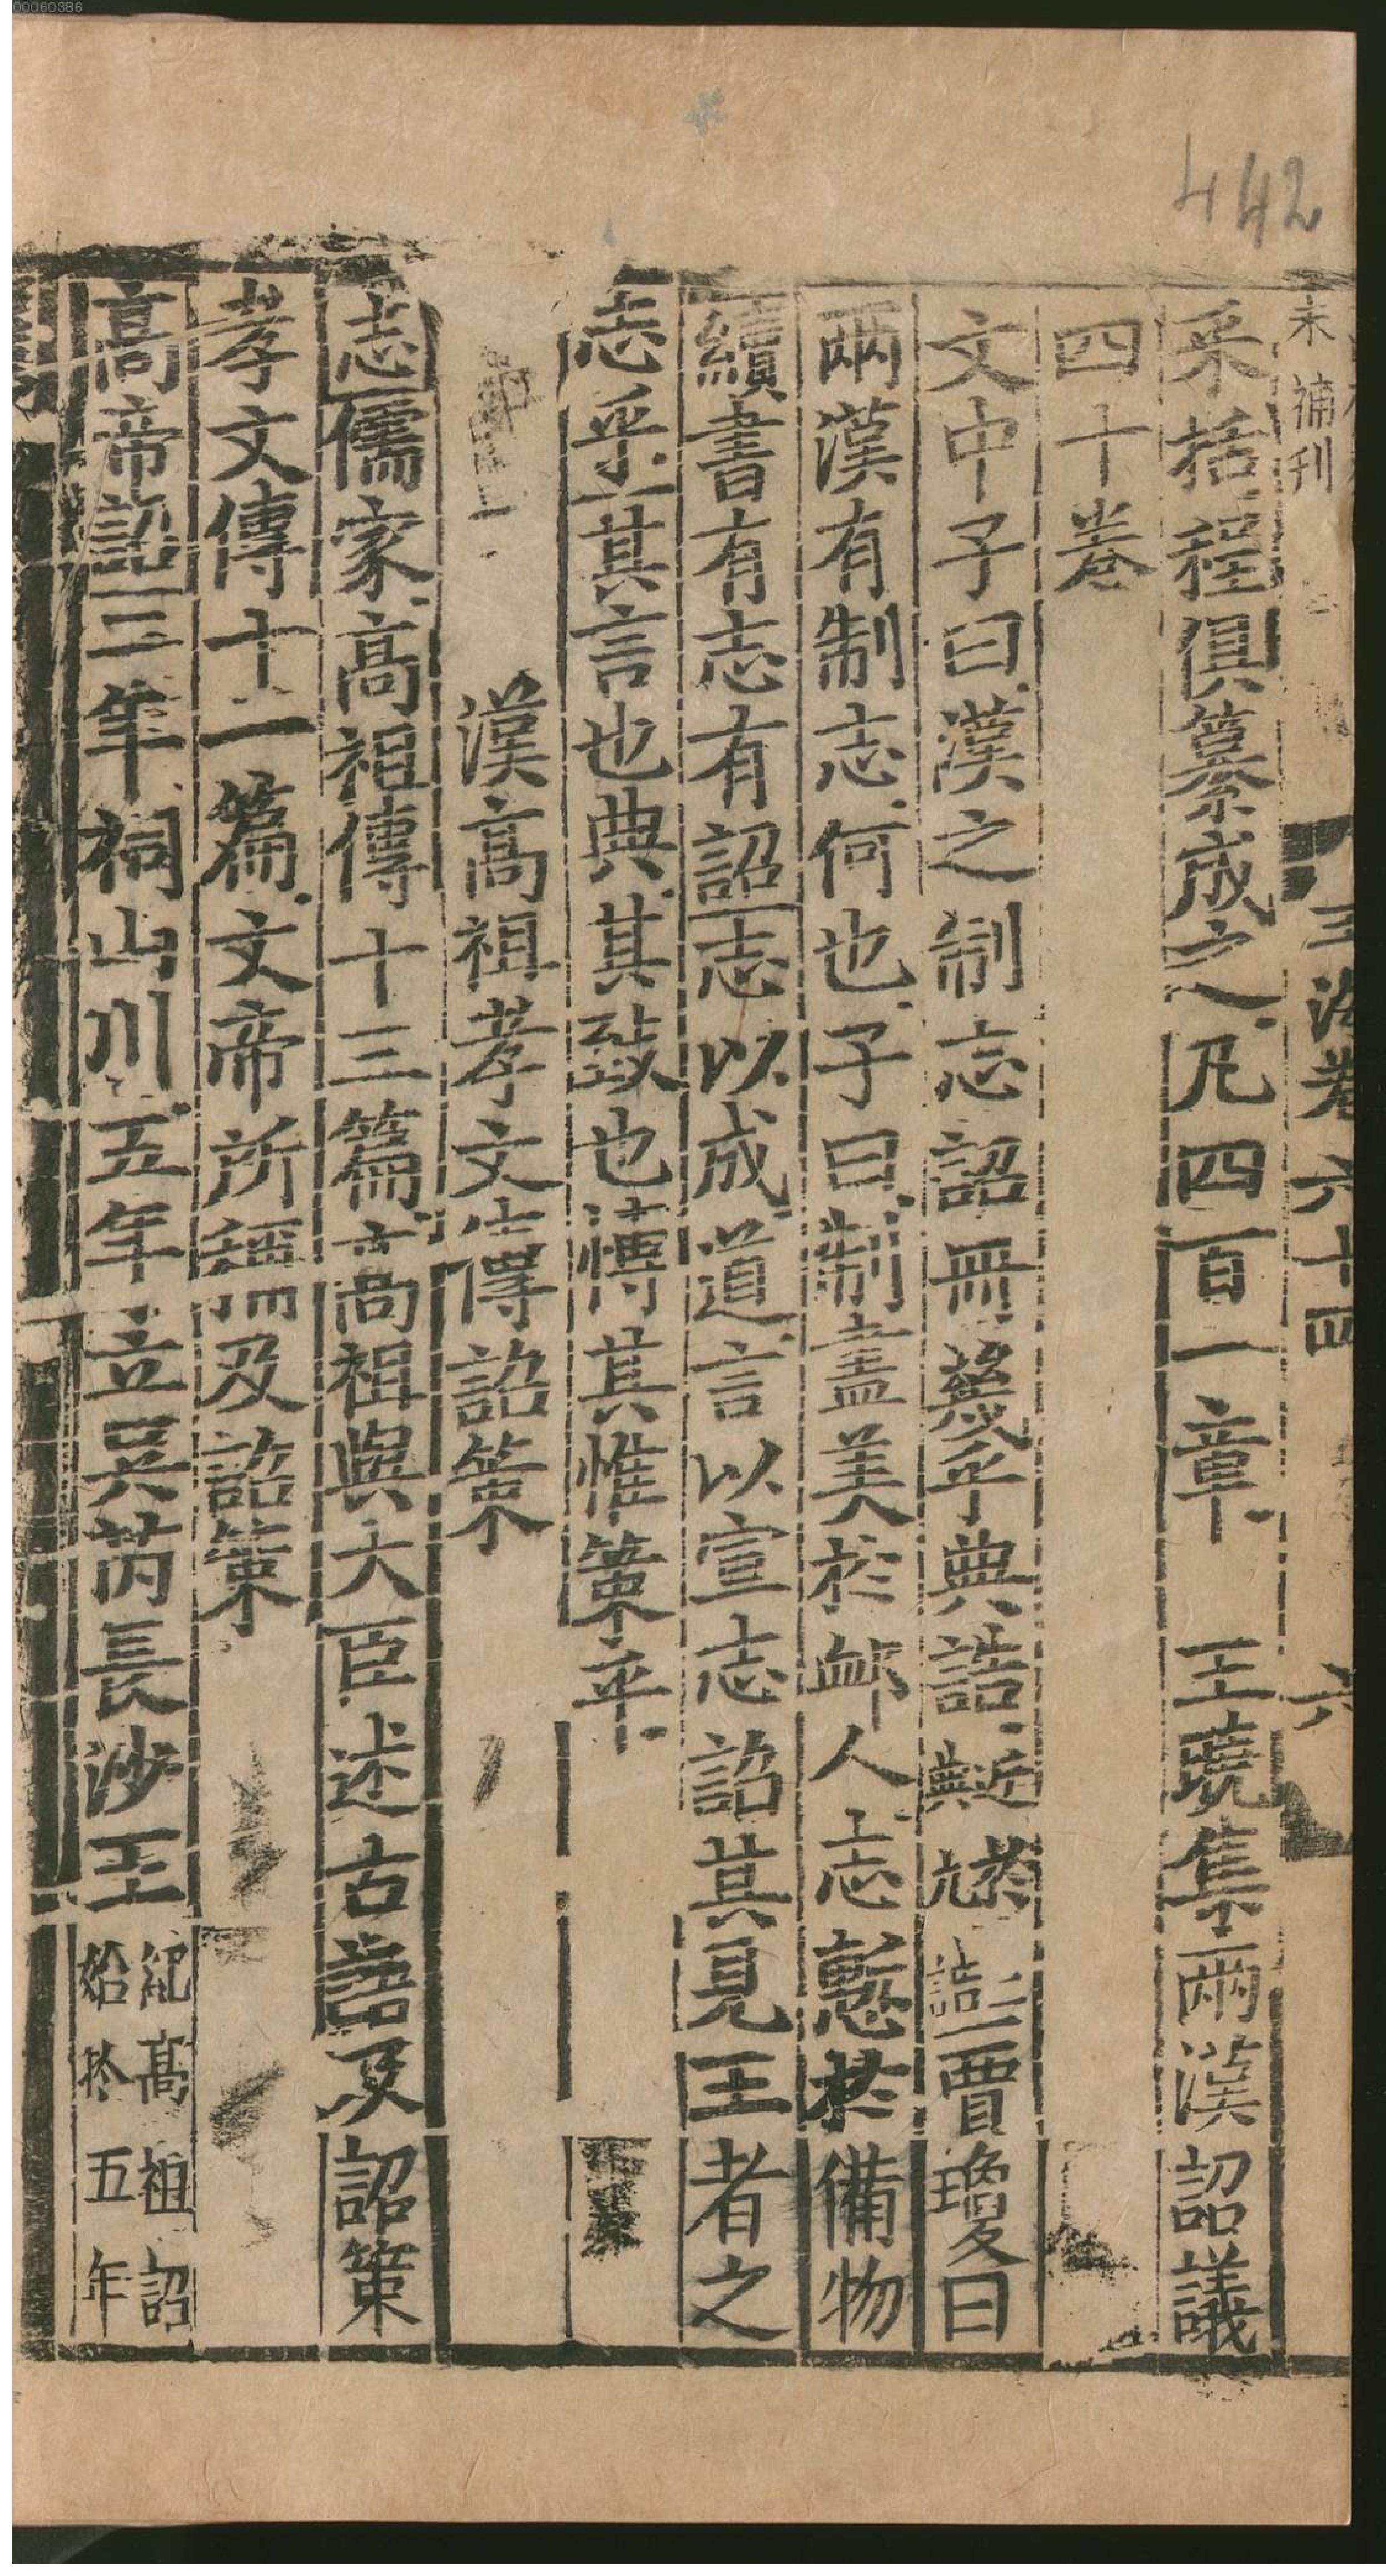 00060386
442
未補刊
玉海卷六十四
六
采括程俱纂成之凡四百一章 王曉集兩漢詔議
四十卷
文中子曰漢之制志詔冊幾乎典誥 賈瓊曰
兩漢有制志何也子曰制盖美於卹人志慙於備物
續書有志有詔志以成道言以宣志詔其見王者之
志乎其言也典其致也博其惟策乎
漢高祖孝文傳詔策
志儒家高祖傳十三篇高祖與大臣述古語及詔策
孝文傳十一篇文帝所稱及詔策
高帝詔三年祠山川五年立吳芮長沙王紀高祖詔始於五年